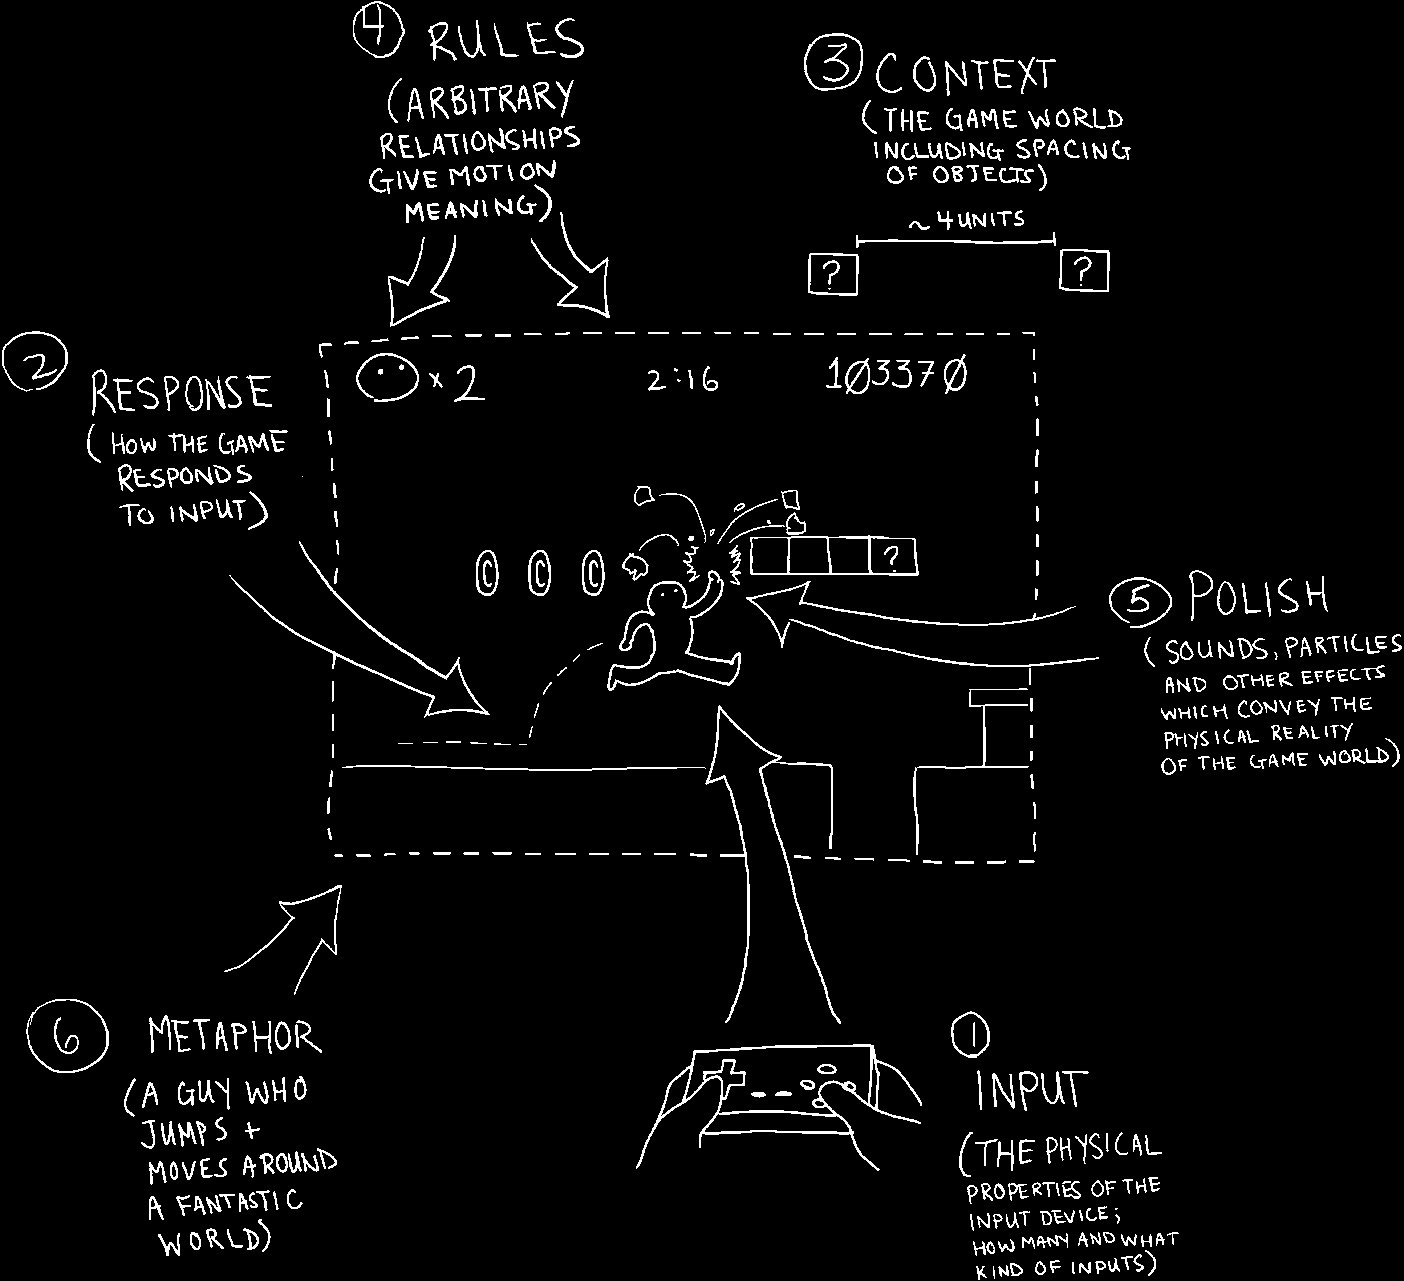 4 RULES
(ARBITRARY
RELATIONSHIPS
GIVE MOTION
MEANING)
3 CONTEXT
(THE GAME WORLD
INCLUDING SPACING
OF OBJECTS)
~ 4 UNITS
? ?
2 RESPONSE
(HOW THE GAME
RESPONDS
TO INPUT)
x 2 2:16 103370
C C C ?
5 POLISH
(SOUNDS, PARTICLES
AND OTHER EFFECTS
WHICH CONVEY THE
PHYSICAL REALITY
OF THE GAME WORLD)
6 METAPHOR
(A GUY WHO
JUMPS +
MOVES AROUND
A FANTASTIC
WORLD)
1
INPUT
(THE PHYSICAL
PROPERTIES OF THE
INPUT DEVICE;
HOW MANY AND WHAT
KIND OF INPUTS)